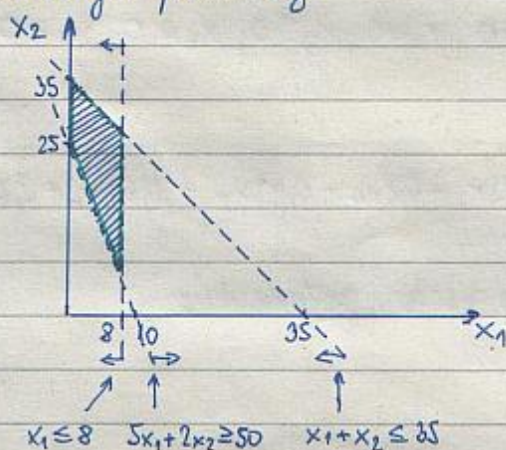 x₂
35
25
8 10 35 x₁
x₁ ≤ 8 5x₁+2x₂ ≥ 50 x₁+x₂ ≤ 35